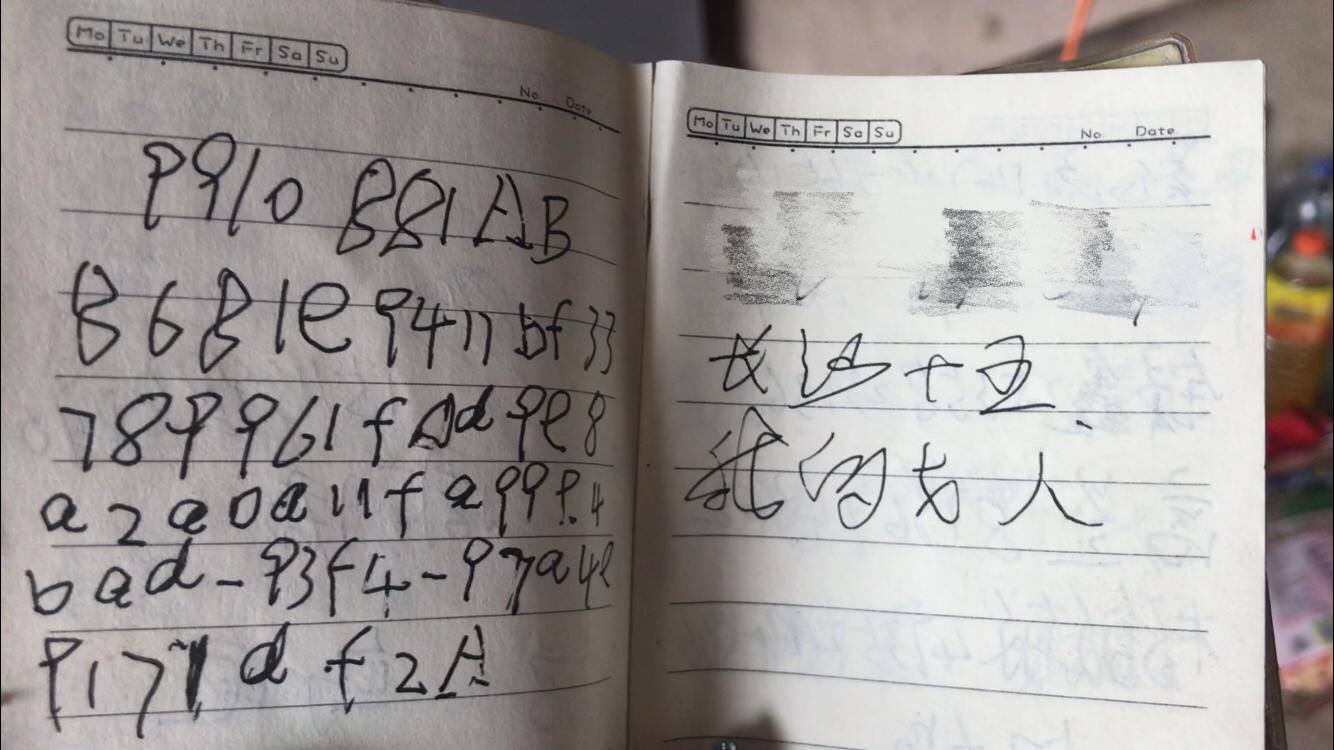 Mo Tu We Th Fr Sa Su
No. Date.
9910 881AB
8681e9411bf33
7899961fAd9e8
a2a0a11fa999.4
bad-93f4-97a4e
9177df2A
Mo Tu We Th Fr Sa Su
No. Date.
长沙十五
我的女人